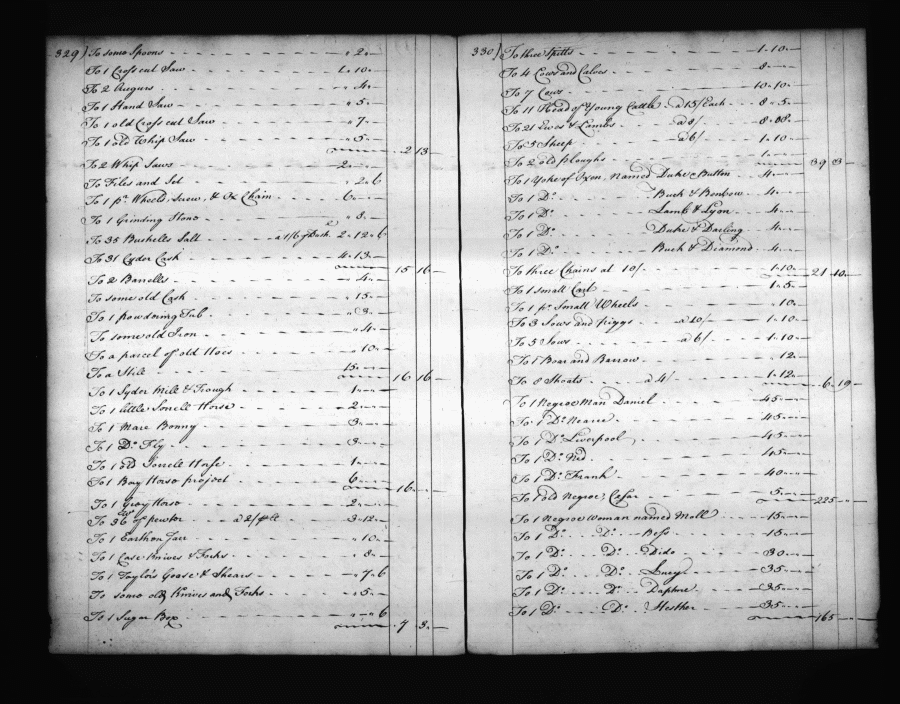 329) To some Spoons - - - " 2 "
To 1 Cross cut Saw - - - 1 . 10 "
To 2 Augurs - - - " 4 "
To 1 Hand Saw - - - " 5 "
To 1 old Cross cut Saw - - - " 7 "
To 1 old Whip Saw - - - " 5 " . 2 13 "
To 2 Whip Saws - - - 2 " "
To Files and Set - - - " 2 . 6
To 1 pr Wheels, Screw, & Ox Chain - - - 6 " "
To 1 Grinding Stone - - - " 8 "
To 35 Bushells Salt - - a 1/6 p Bush. 2 . 12 . 6
To 31 Cyder Cask - - - 4 . 13 " 15 16 "
To 2 Barrells - - - " 4 "
To some old Cask - - - " 15 "
To 1 powdering Tub - - - " 3 "
To some old Iron - - - " 4 "
To a parcel of old Hoes - - - " 10 "
To a Still - - - 15 " " 16 16 "
To 1 Syder Mill & Trough - - - 1 " "
To 1 little Sorrell Horse - - - 2 " "
To 1 Mare Bonny - - - 3 " "
To 1 Do Fly - - - 3 " "
To 1 old Sorrell Horse - - - 1 " "
To 1 Bay Horse project - - - 6 " " 16 " "
To 1 Gray Horse - - - 2 " "
To 36 w of pewter - - a 2/ - - 3 . 12 "
To 1 Earthen Jarr - - - " 10 "
To 1 Case Knives & Forks - - - " 8 "
To 1 Taylors Goose & Shears - - - " 7 . 6
To some old Knives and Forks - - - " 5 "
To 1 Sugar Box - - - " " 6 . 7 3 "
330) To three Spitts - - - 1 . 10 "
To 4 Cows and Calves - - - 8 " "
To 7 Cows - - - 10 . 10 "
To 11 Head of Young Cattle - a 15/ Each - - 8 " 5 "
To 21 Ewes & Lambs - - a 8/ - - 8 . 08 "
To 5 Sheep - - a 6/ - - 1 . 10 "
To 2 old ploughs - - - 1 " " 39 3 "
To 1 Yoke of Oxen, Named Duke Button - - 4 " "
To 1 Do - - - Buck & Benbow - - 4 " "
To 1 Do - - - Lamb & Lyon - - 4 " "
To 1 Do - - - Duke & Darling - - 4 " "
To 1 Do - - - Buck & Diamond - - 4 " "
To three Chains at 10/ - - - 1 . 10 " 21 10 "
To 1 small Cart - - - 1 " 5 "
To 1 pr Small Wheels - - - " 10 "
To 3 Sows and piggs - - a 10/ - - 1 . 10 "
To 5 Sows - - a 6/ - - 1 . 10 "
To 1 Boar and Barrow - - - " 12 "
To 8 Shoats - - a 4/ - - 1 . 12 " 6 19 "
To 1 Negroe Man Daniel - - - 45 " "
To 1 Do Nearer - - - 45 " "
To 1 Do Liverpool - - - 45 " "
To 1 Do Ned - - - 45 " "
To 1 Do Frank - - - 40 " "
To 1 old Negroe, Cesar - - - 5 " " 225 " "
To 1 Negroe Woman named Moll - - - 15 " "
To 1 Do - - Do - Bess - - - 15 " "
To 1 Do - - Do - Dido - - - 30 " "
To 1 Do - - Do - Lucy - - - 35 " "
To 1 Do - - Do - Daphne - - - 35 " "
To 1 Do - - Do - Hesther - - - 35 " " 165 " "